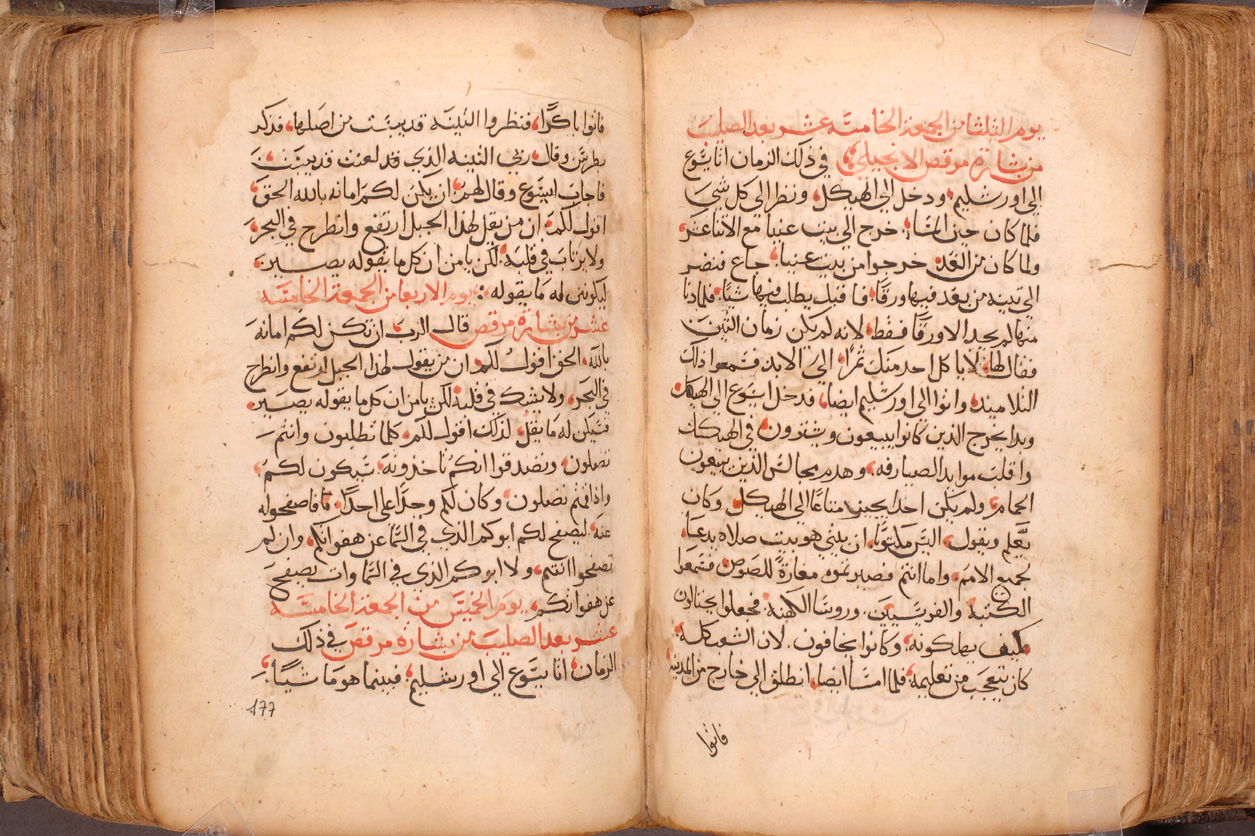 يوم الثلثا من الجمعة الخامسة عشر بعد الصليب
من بشارة مرقص الانجيلي في ذلك الزمان اتا يسوع
الي اورشليم ودخل الي الهيكل ونظر الي كل شي
فلما كان حين المسا خرج الي بيت عنيا مع الاثناعشر
ولما كان من الغد خرجوا من بيت عنيا جاع فنضر
الي تينه من بعد فيها ورقا فاقبل يطلب فيها شيا فلما دنا
منها لم يجد الا ورقا فقط لانه لم يكن زمان التين
فقال لها لا ياكل احد منك ثمرا الي الابد فسمعوا ذلك
التلاميذ واتوا الي اورشليم ايضا فدخل ايسوع الي الهيكل
وبدا يخرج الذين كانوا يبيعون ويشترون في الهيكل
واقلب موايد الصيارفه وهدم مجالس الذين يبيعون
الحمام ولم يكن احدا يجيز متاعا الي الهيكل وكان
يعلم ويقول اليس مكتوبا ان بيتي هو بيت صلاه يدعا
لجميع الامم واما انتم فصيرتموه مغارة للصوص فسمعوا
الكتبه والفريسيين وروسا الكهنة فجعلوا يحتالون
كيف يهلكونه وكانوا يخافون لان الشعب كله
كان يتعجب من تعليمه فلما امسا ايضا انطلق الي خارج من المدينة
فاتوا
فاتوا باكرا فنظروا التينه قد يبست من اصلها فذكر
بطرس وقال ربي التينه الذي قد لعنت قد يبست
فاجاب ايسوع وقال لهم ان يكن لكم امانه بالله الحق
اقول لكم ان من يقل لهذا الجبل ارتفع وانطرح في البحر
ولا يرتاب في قلبه لكن يامن ان كل ما يقوله يصير
ليكونن له ما يقوله يوم الاربعا من الجمعة الخامسة
عشر من بشارة مرقص قال الرب ان تكن لكم امانه
بالله الحق اقول لكم ان من يقول لهذا الجبل ارتفع وانطرح
في البحر ولا يشك في قلبه لكن يامن ان كل ما يقوله يصير
فسيكن له ما يقل لذلك اقول لكم كلما تطلبون وانتم
تصلون وتصدقوا انكم تاخذونه سيكون لكم
واذا قمتم تصلون وكان لكم وجدا علي احدا فاصفحوا له
عنه ليصفح لكم ابوكم الذي في السما عن هفواتكم وان لم
تصفحوا انتم ولا ابوكم الذي في السما وان يصفح
عن هفواتكم يوم الخميس من الجمعة الخامسة
عشر بعد الصليب من بشارة مرقص في ذلك
الزمان اتا يسوع الي اورشليم فبينما هو ماشيا
177